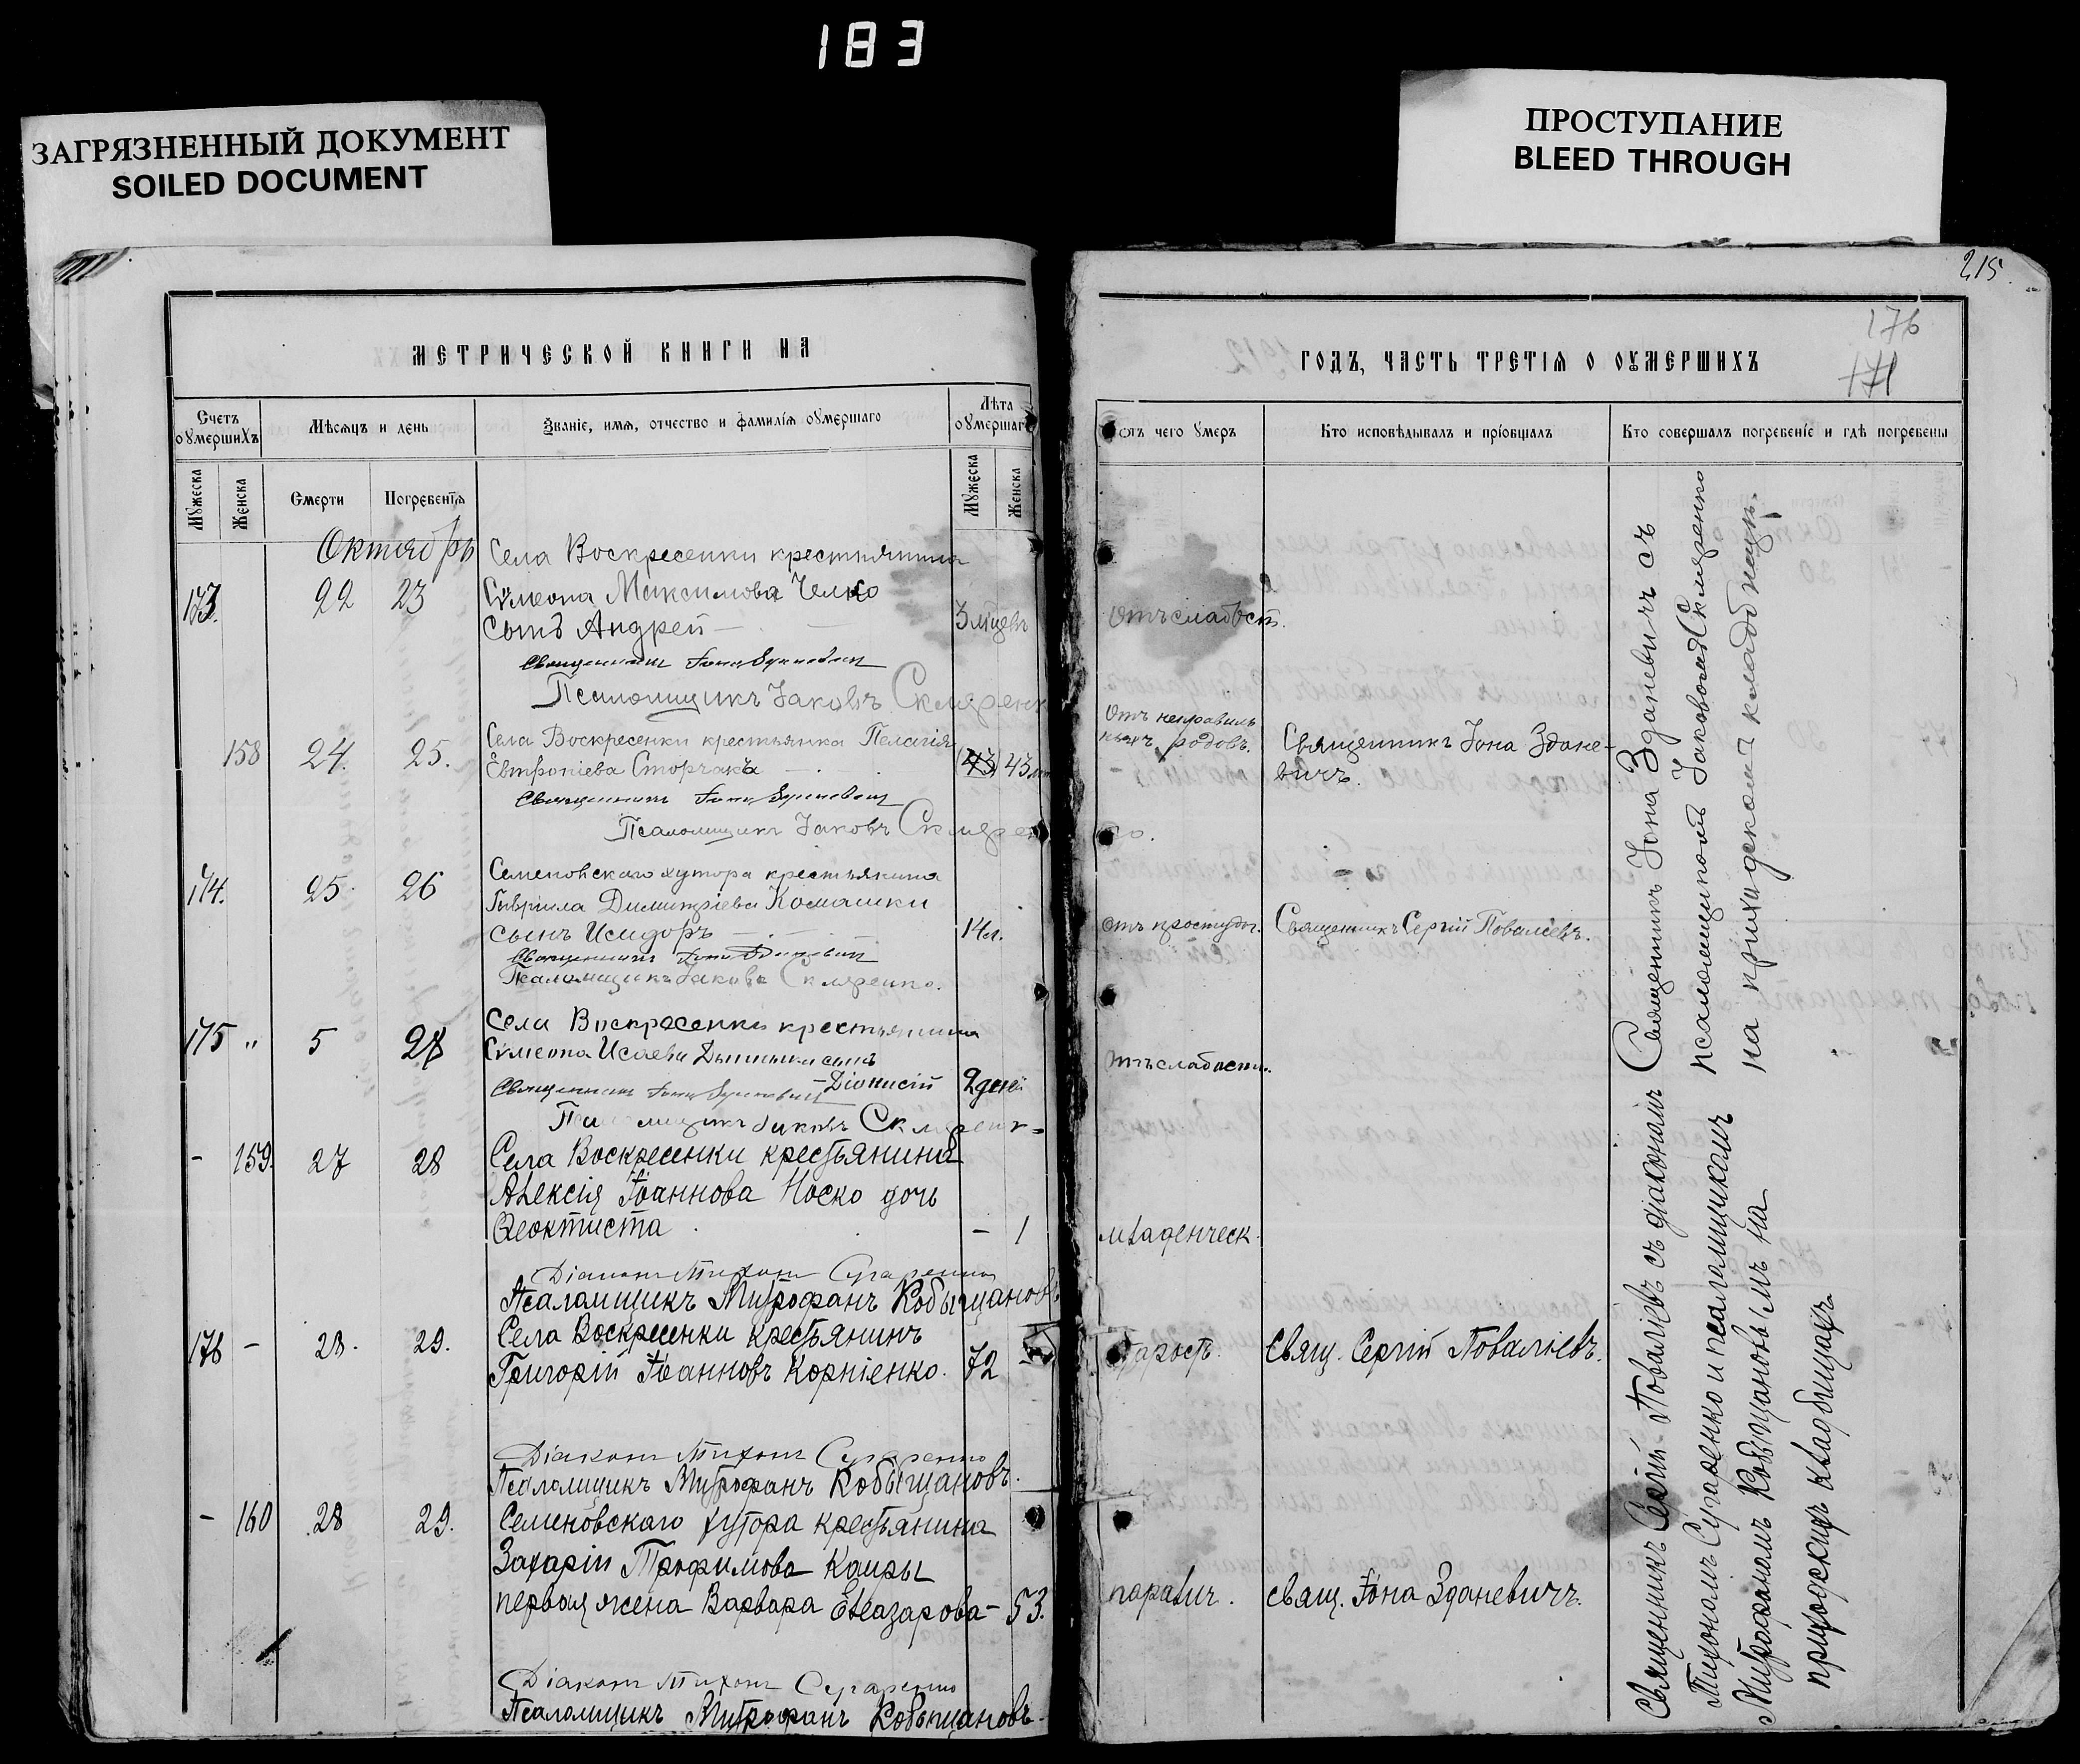 183
ЗАГРЯЗНЕННЫЙ ДОКУМЕНТ
SOILED DOCUMENT
ПРОСТУПАНИЕ
BLEED THROUGH
215.
176
171
МЕТРИЧЕСКОЙ КНИГИ НА
ГОДЪ, ЧАСТЬ ТРЕТІЯ О ОУМЕРШИХЪ
Счетъ оумершихъ
Мѣсяцъ и день
Званіе, имя, отчество и фамилія оумершаго
Лѣта оумершаго
Отъ чего умеръ
Кто исповѣдывалъ и пріобщалъ
Кто совершалъ погребеніе и гдѣ погребены
Мужеска
Женска
Смерти
Погребенія
Мужеска
Женска
Октябрь
Села Воскресенки крестьянина
173. 22 23 Сѵмеона Максимова
Сынъ Андрей 3 мѣсц Отъ слабост.
Священникъ Іона Зданевич
Псаломщикъ Іаковъ Скляренк
158 24. 25. Села Воскресенки крестьянка Пелагія
Евтропіева Сторчакъ 43 43
Отъ неправиль
ныхъ родовъ.
Священникъ Іона Здане-
вичъ.
Священникъ Іона Зданевич
Псаломщикъ Іаковъ Скляренко.
174. 25. 26 Семеновскаго хутора крестьянина
Гавриила Димитріева Комашки
сынъ Исидоръ 14 л. отъ простуды. Священникъ Сергій Поваліевъ.
Священникъ Іона Зданевич
Псаломщикъ Іаковъ Скляренко.
175 " 5 28 Села Воскресенки крестьянина
Сѵмеона Исаева сынъ
Діонисій 2 дней Отъ слабости.
Священникъ Іона Зданевич
Псаломщикъ Іаковъ Скляренк=
- 159. 27 28 Села Воскресенки крестьянина
Алексія Іоаннова Носко дочь
Ѳеоктиста - 1 младенческ.
Діаконъ Тихонъ Сугаренко
Псаломщикъ Митрофанъ Кобыщановъ
176 - 28. 29. Села Воскресенки крестьянинъ
Григорій Іоанновъ Корніенко. 72 - старость. Свящ. Сергій Поваліевъ.
Діаконъ Тихонъ Сугаренко
Псаломщикъ Митрофанъ Кобыщановъ.
- 160 28 29. Семеновскаго хутора крестьянина
Захаріи Трофимова Каиры
первая жена Варвара Елеазарова - 53. паралич. свящ. Іона Зданевичъ.
Діаконъ Тихонъ Сугаренко
Псаломщикъ Митрофанъ Кобыщановъ.
Священникъ Іона Зданевичъ съ
псаломщикомъ Іаковомъ Скляренко
на приходскомъ кладбищѣ.
Священникъ Сергій Поваліевъ съ діакономъ
Тихономъ Сугаренко и псаломщикомъ
Митрофаномъ Кобыщановымъ на
приходскихъ кладбищахъ.